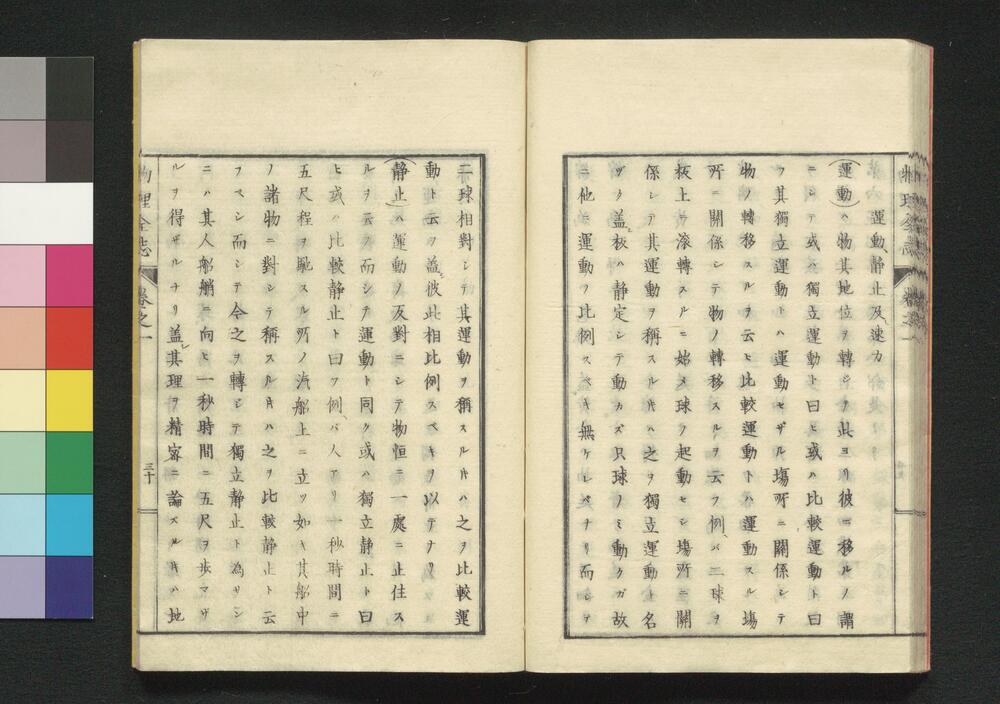 物理全志
卷之一
運動、靜止及速力
(運動)ハ物其地位ヲ轉シヲ此ヨリ彼ニ移ルノ謂
ニシテ或ハ獨立運動ト曰ヒ或ハ比較運動ト曰
フ其獨立運動トハ運動セザル塲所ニ關係シテ
物ノ轉移スルヲ云ヒ比較運動トハ運動スル塲
所ニ關係シテ物ノ轉移スルヲ云フ例、バ二球ヲ
板上ヲ滾轉スルニ始メ球ヲ起動セシ塲所ニ關
係シテ其運動ヲ稱スル𪜈ハ之ヲ獨立運動ト名
ヅク盖シ板ハ靜定シテ動カズ只球ノミ動クガ故
ニ他ニ運動ヲ比例スベキ無ケレバナリ而シテ
二球相對シテ其運動ヲ稱スル𪜈ハ之ヲ比較運
動ト云フ盖シ彼此相比例スベキヲ以テナリ
(靜止)ハ運動ノ反對ニシテ物恒ニ一處ニ止住ス
ルヲ云フ而シテ運動ト同ク或ハ獨立靜止ト曰
ヒ或ハ比較靜止ト曰フ例、バ人アリ一秒時間ニ
五尺程ヲ馳スル所ノ汽船上ニ立ツ如キ其船中
ノ諸物ニ對シテ稱スル𪜈ハ之ヲ比較靜止ト云
フベシ而シテ今之ヲ轉シテ獨立靜止ト為サン
ニハ其人船艄ニ向ヒ一秒時間ニ五尺ヲ歩マザ
ルヲ得ザルナリ盖シ其理ヲ精密ニ論ズル𪜈ハ地
物理全志
卷之一
三十